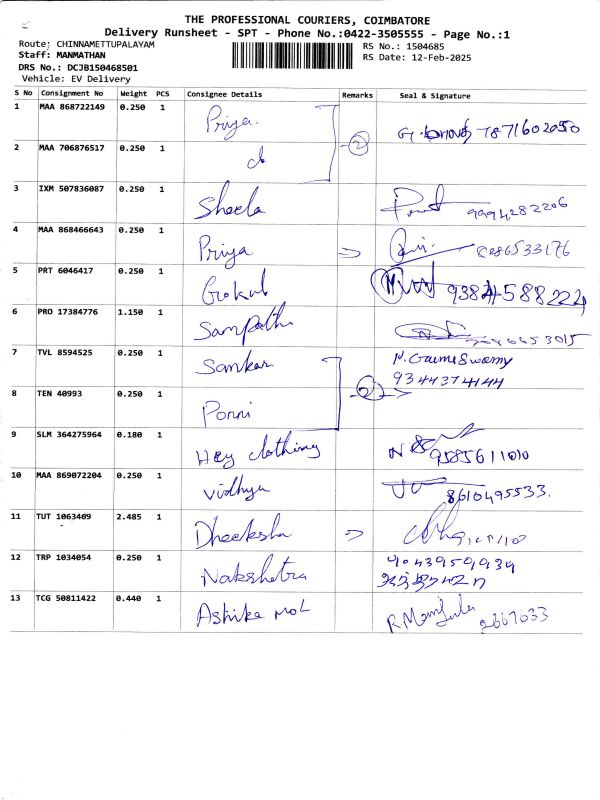 THE PROFESSIONAL COURIERS, COIMBATORE
Delivery Runsheet - SPT - Phone No.:0422-3505555 - Page No.:1
Route: CHINNAMETTUPALAYAM
RS No.: 1504685
Staff: MANMATHAN
RS Date: 12-Feb-2025
DRS No.: DCJB150468501
Vehicle: EV Delivery
S No Consignment No Weight PCS Consignee Details Remarks Seal & Signature
1 MAA 868722149 0.250 1 Priya. 7871602050
2 MAA 706876517 0.250 1 do 2
3 IXM 507836087 0.250 1 Sheela 9994282206
4 MAA 868466643 0.250 1 Priya
5 PRT 6046417 0.250 1 Gokul 9384588224
6 PRO 17384776 1.150 1 Sampath
7 TVL 8594525 0.250 1 Sankar 9344374144
8 TEN 40993 0.250 1 Ponni 2
9 SLM 364275964 0.180 1 Hey clothing 9585611010
10 MAA 869072204 0.250 1 Vidhya 8610495533.
11 TUT 1063409 2.485 1 Dheeksha
12 TRP 1034054 0.250 1 Nakshatra
13 TCG 50811422 0.440 1 Ashika mol